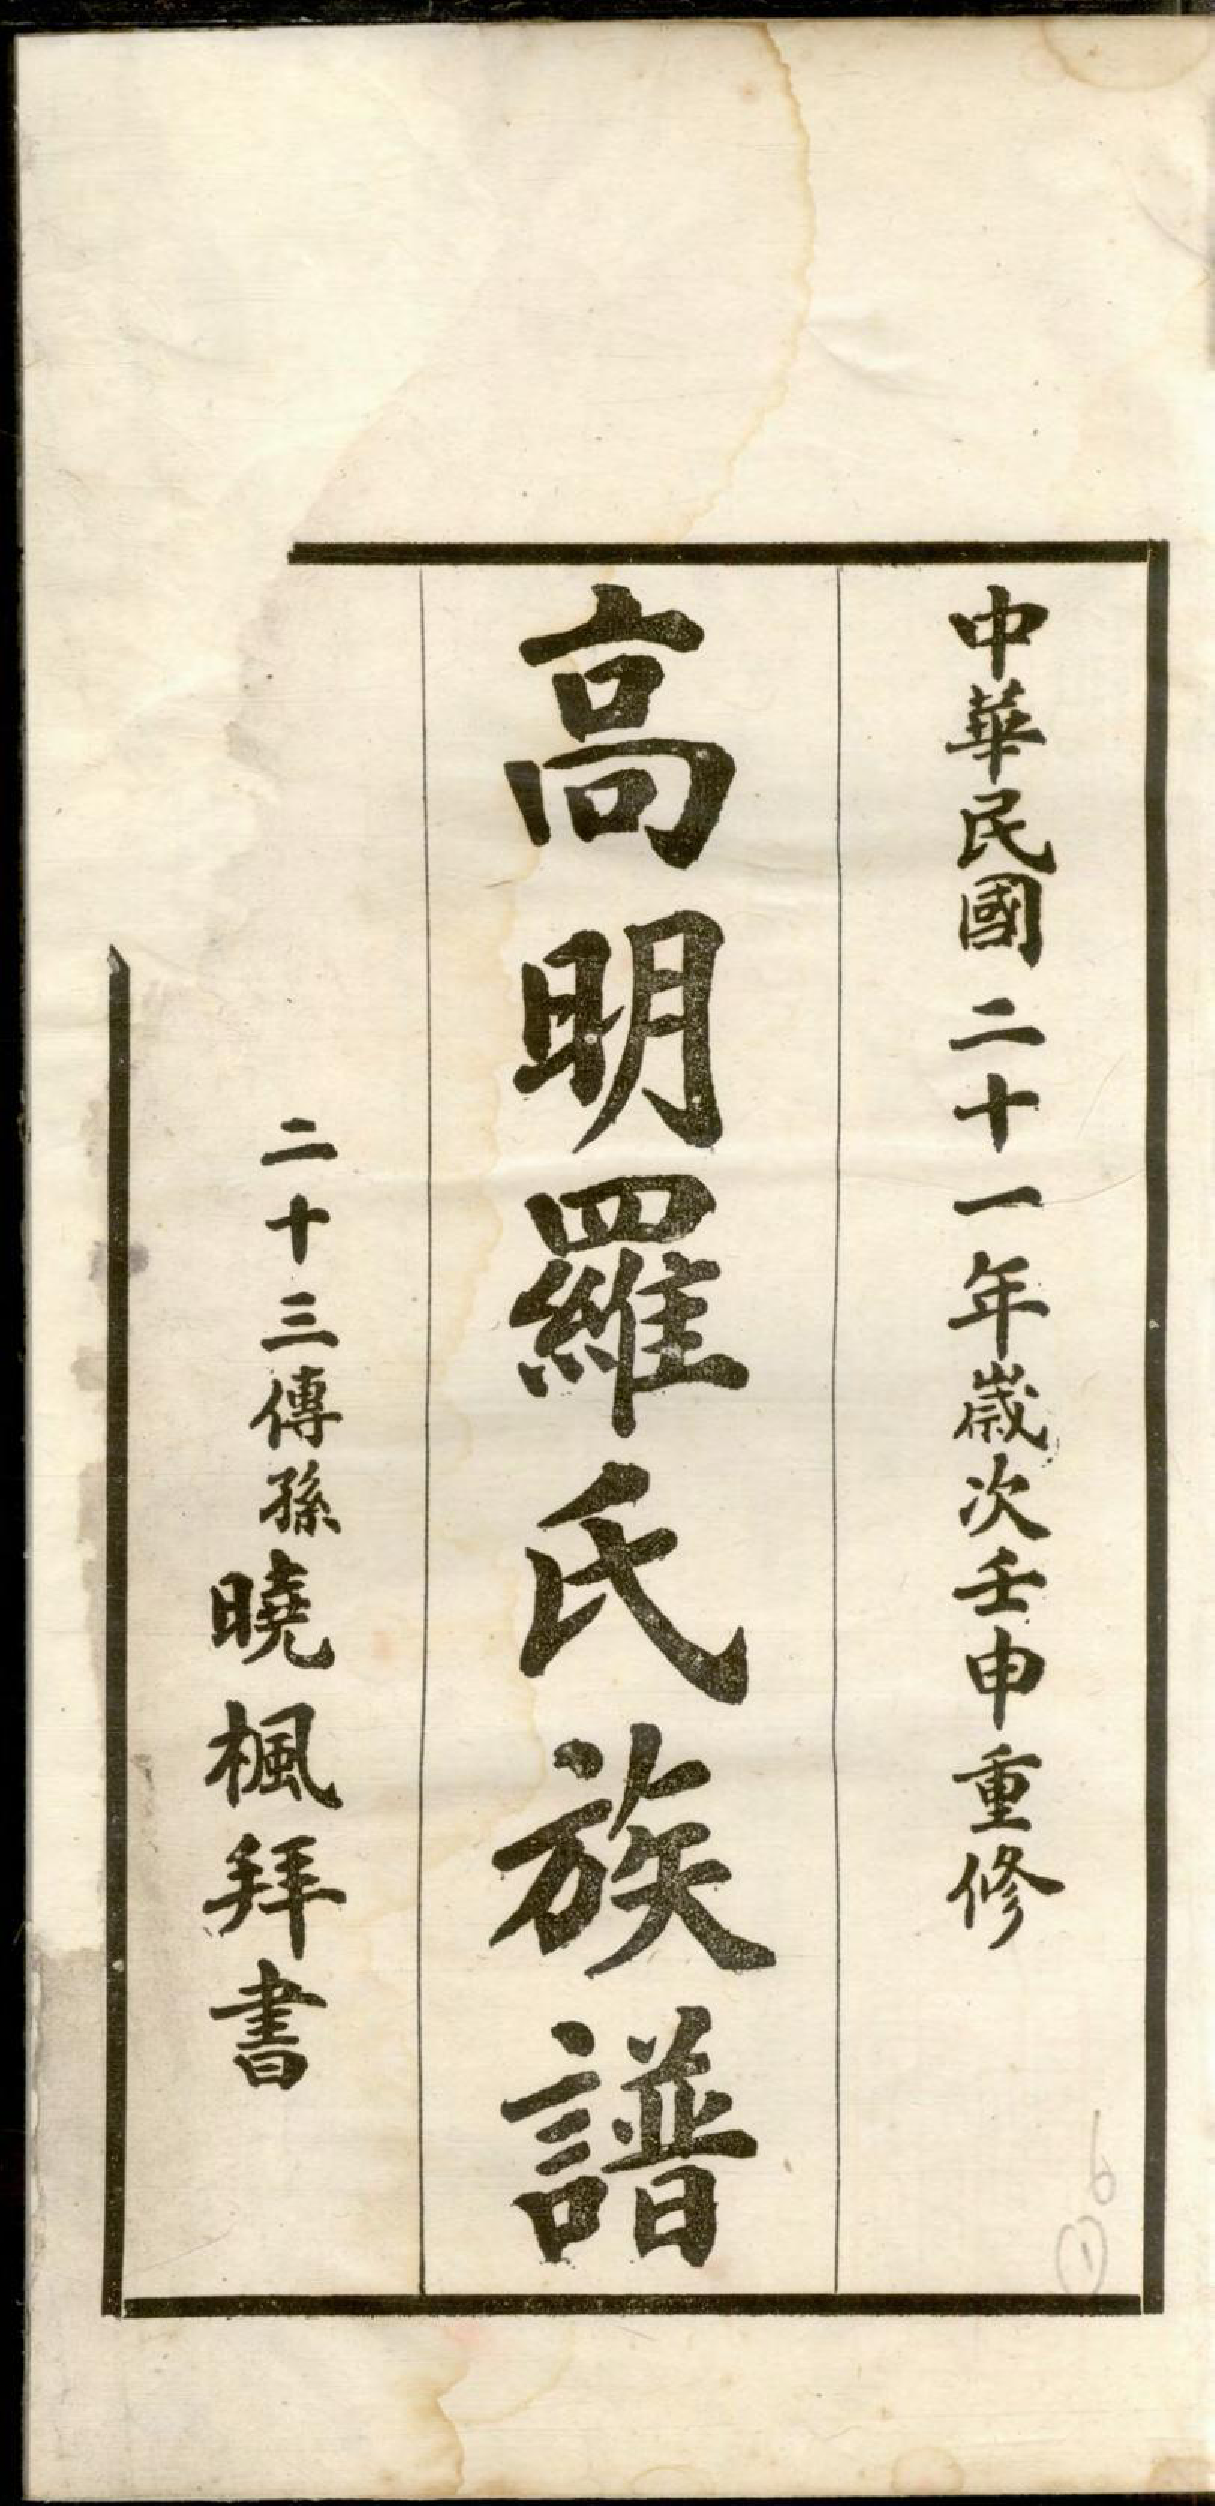 中華民國二十一年歲次壬申重修
高明羅氏族譜
二十三傳孫曉楓拜書
6
1